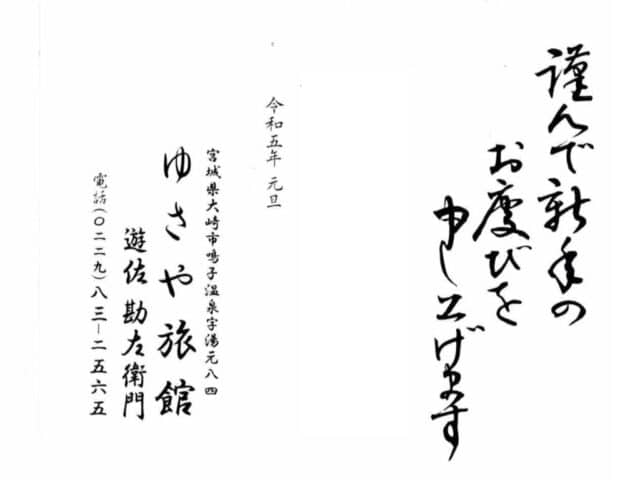 謹んで新年の
お慶びを
申し上げます
令和五年 元旦
宮城県大崎市鳴子温泉字湯元八四
ゆさや旅館
遊佐勘左衛門
電話(〇二二九)八三―二五六五